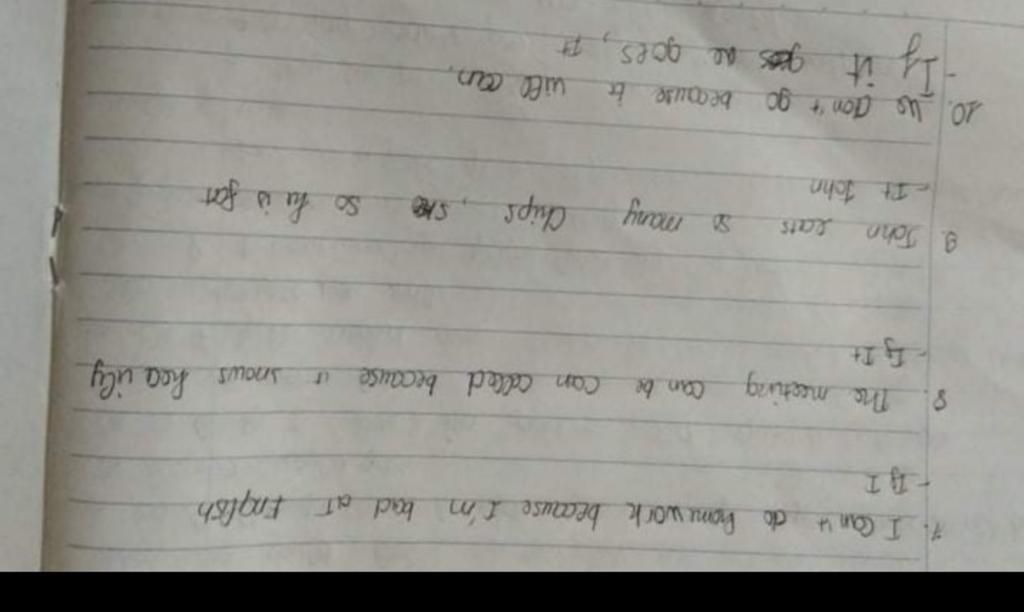 7. I can't do homework because I'm bad at English
- If I
8. The meeting can be can celled because it snows heavily
- If It
9. John eats so many chips, so he is fat
- If John
10. We don't go because it will rain.
- If it goes, it